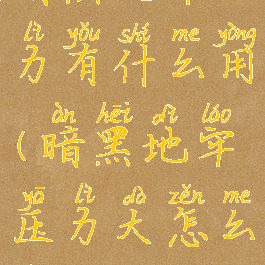 lì yǒu shí me yòng
力有什么用
àn hēi dì láo
(暗黑地牢
yā lì dà zěn me
压力大怎么